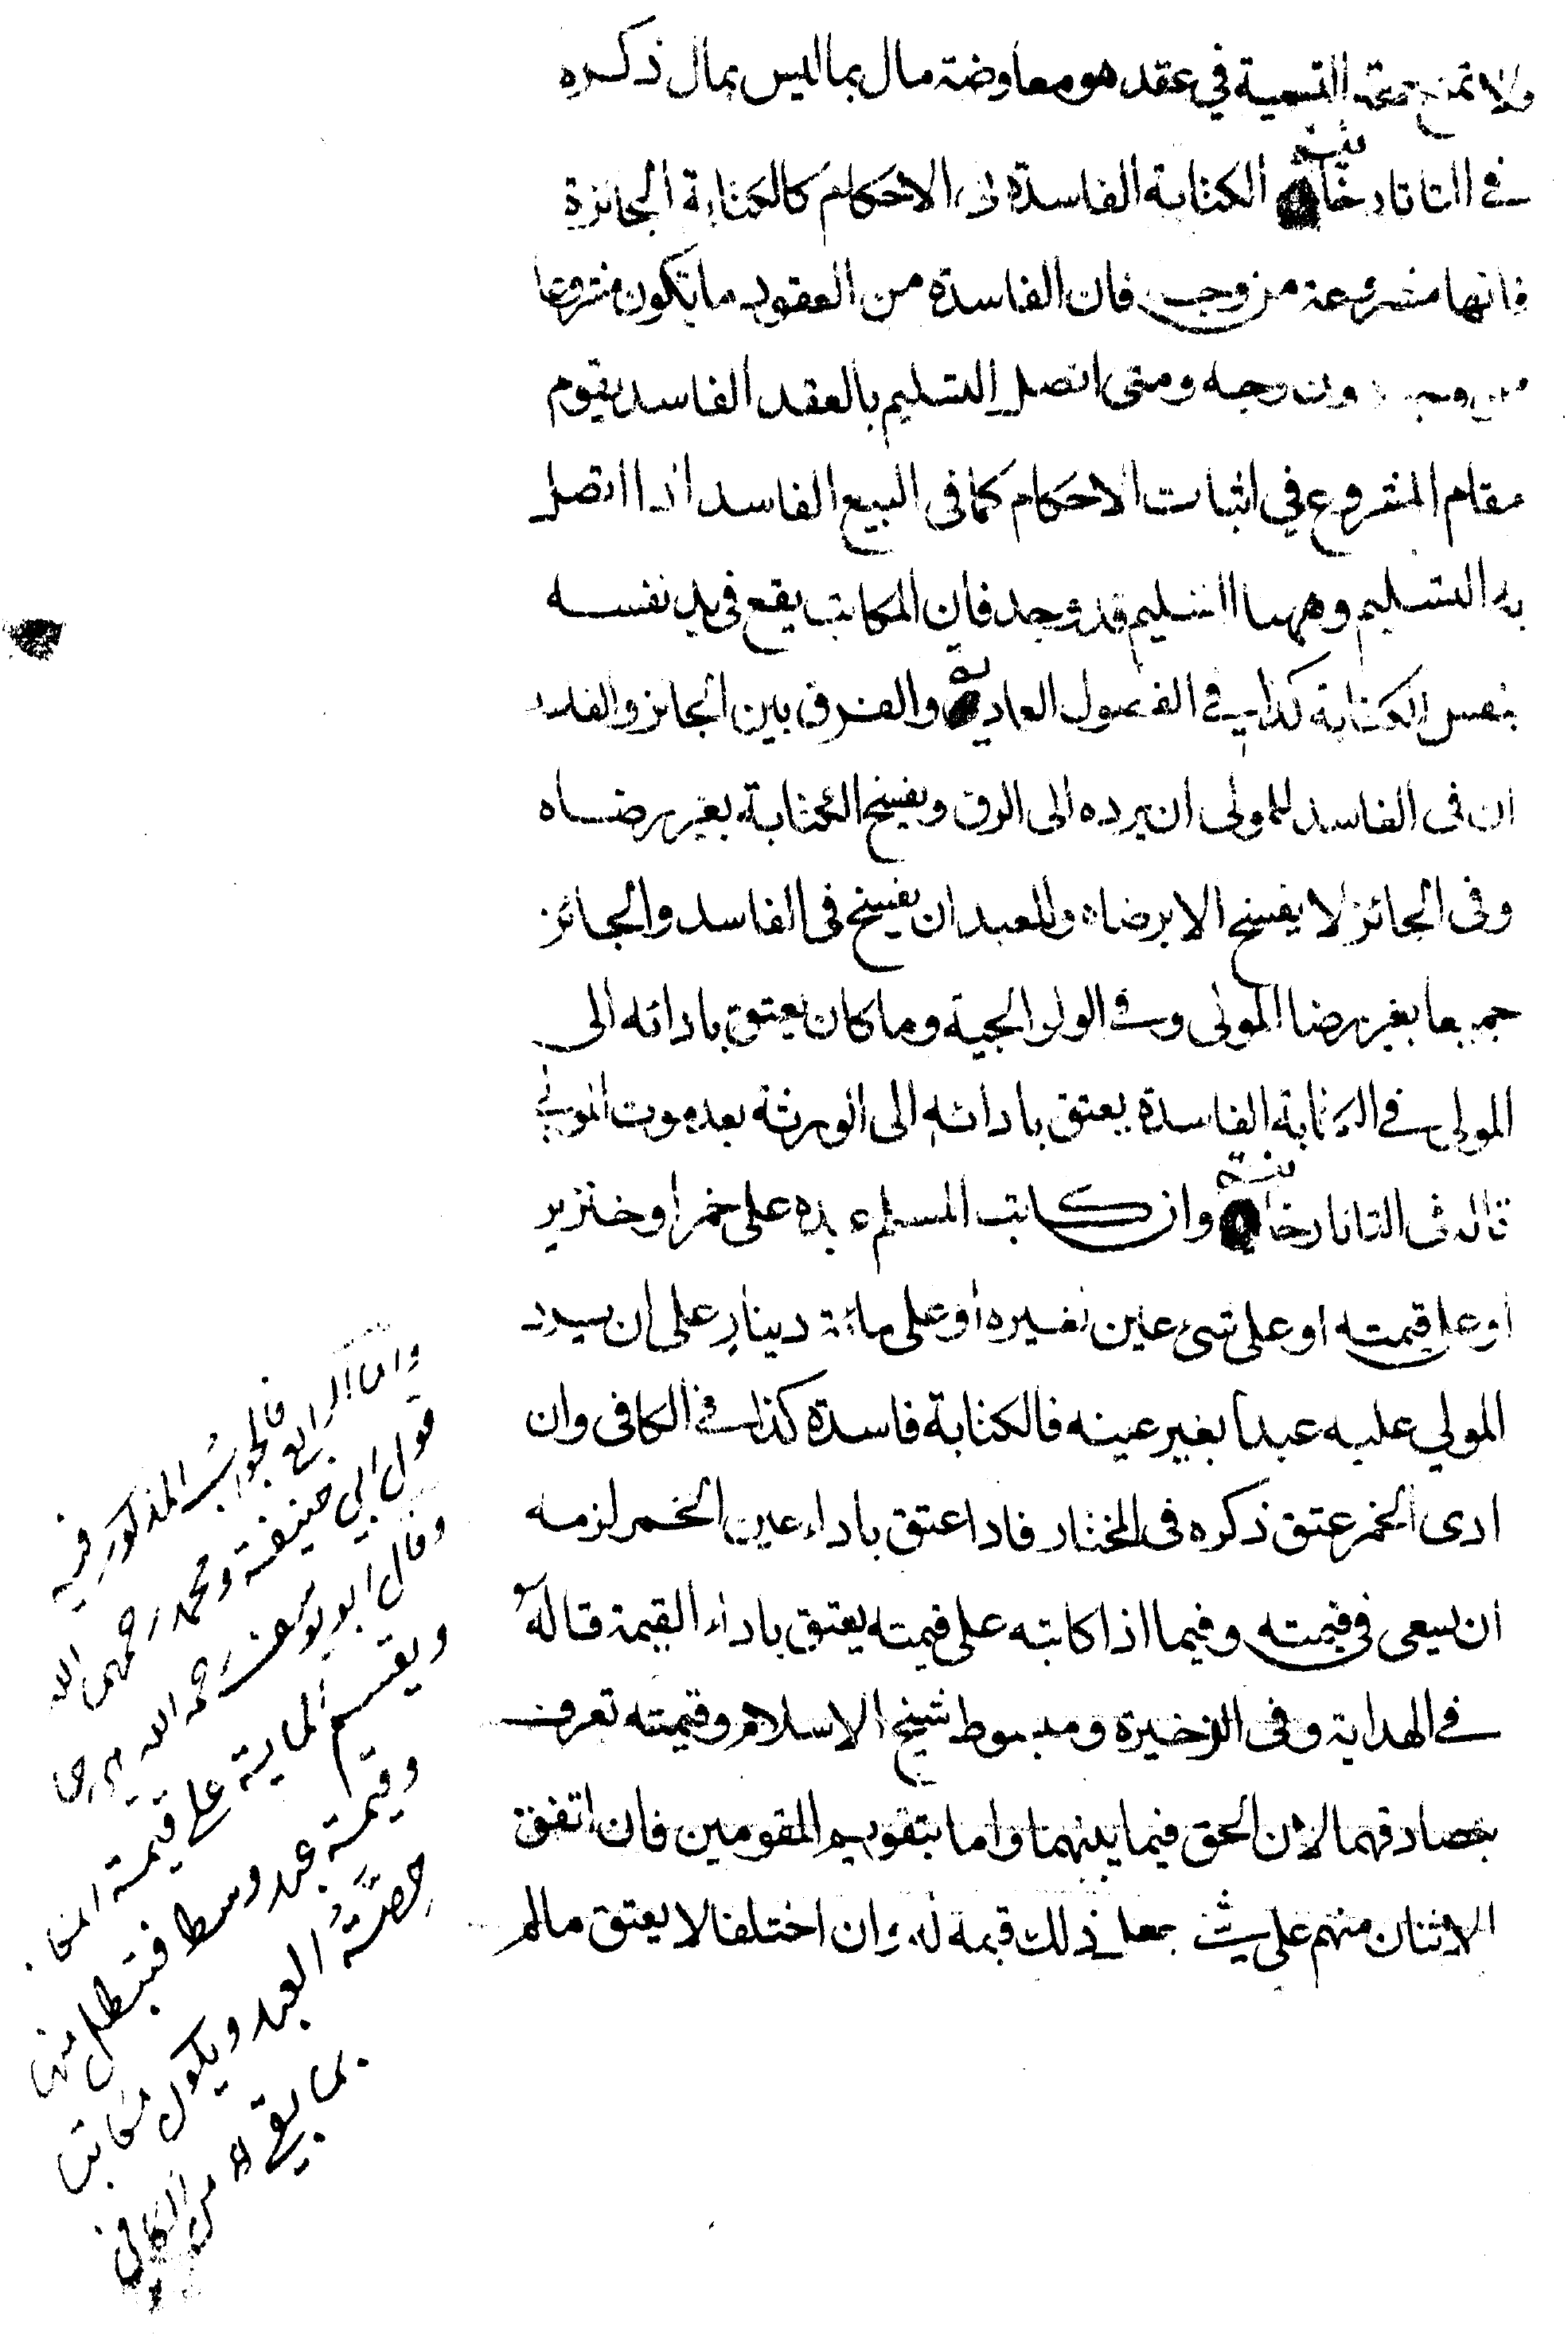 ولا تمنع صحة التسمية في عقد هو معاوضة مال بما ليس بمال ذكره
في التاتارخانية الكتابة الفاسدة في الاحكام كالكتابة الجائزة
فانها مشروعة من وجه فان الفاسدة من العقود ما يكون مشروعا
من وجه دون وجه ومتى اتصل التسليم بالعقد الفاسد يقوم
مقام المشروع في اثبات الاحكام كما فى البيع الفاسد اذا اتصل
به التسليم وههنا التسليم قد وجد فان المكاتب يقع فى يد نفسه
بنفس الكتابة كذا في الفصول العمادية والفرق بين الجائز والفاسد
ان فى الفاسد للمولى ان يرده الى الرق ويفسخ الكتابة بغير رضاه
وفى الجائز لا يفسخ الا برضاه وللعبد ان يفسخ فى الفاسد والجائز
جميعا بغير رضا المولى وفي الولوالجية وما كان يعتق بادائه الى
المولى في الكتابة الفاسدة يعتق بادائه الى الورثة بعد موت المولى
قاله في التاتارخانية وان كاتب المسلم عبده على خمر او خنزير
او على قيمته او على شىء عين لغيره او على مائة دينار على ان يرد
المولي عليه عبدا بغير عينه فالكتابة فاسدة كذا في الكافى وان
ادى الخمر عتق ذكره فى المختار فاذا عتق باداء عين الخمر لزمه
ان يسعى في قيمته وفيما اذا كاتبه على قيمته يعتق باداء القيمة قاله
في الهداية وفى الذخيرة ومبسوط شيخ الاسلام وقيمته تعرف
بتصادقهما لان الحق فيما بينهما واما بتقويم المقومين فان اتفق
الاثنان منهم على شئ جعل ذلك قيمة له وان اختلفا لا يعتق مالم
واما الرابع فالجواب المذكور فيه
قول ابي حنيفة ومحمد رحمهما الله
وقال ابو يوسف رحمه الله هي
ويقسم المائة على قيمة المكا
وقيمة عبد وسط فتبطل منها
حصة العبد ويكون مكاتبا
بما بقي من الكافي